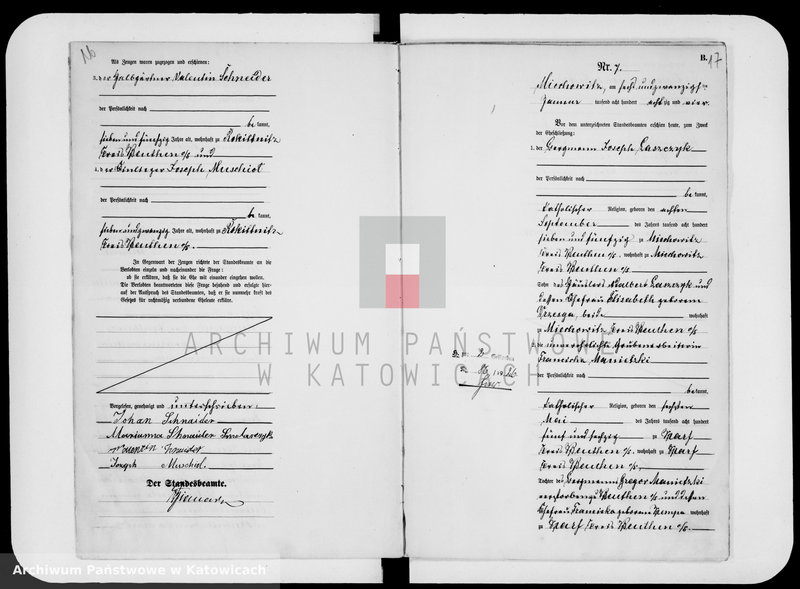 16
Als Zeugen waren zugezogen und erschienen:
3. der Halbgärtner Valentin Schneider
der Persönlichkeit nach
be kannt,
sieben und fünfzig Jahre alt, wohnhaft zu Rokittnitz
Kreis Beuthen o/s und
4. der Joseph Muschiol
der Persönlichkeit nach
be kannt,
sieben und zwanzig Jahre alt, wohnhaft zu Rokittnitz
Kreis Beuthen o/s.
In Gegenwart der Zeugen richtete der Standesbeamte an die
Verlobten einzeln und nacheinander die Frage:
ob sie erklären, daß sie die Ehe mit einander eingehen wollen.
Die Verlobten beantworteten diese Frage bejahend und erfolgte hier-
auf der Ausspruch des Standesbeamten, daß er sie nunmehr kraft des
Gesetzes für rechtmäßig verbundene Eheleute erkläre.
Vorgelesen, genehmigt und unterschrieben:
Johan Schnaider
Marianna Schnaider
Joseph Muschiol
Der Standesbeamte.
B.
17
Nr. 7.
Miechowitz, am sechs und zwanzigsten
Januar tausend acht hundert achtzig und vier.
Vor dem unterzeichneten Standesbeamten erschien heute, zum Zweck
der Eheschließung:
1. der Bergmann Joseph Laszczyk
der Persönlichkeit nach
be kannt,
katholischer Religion, geboren den achten
September des Jahres tausend acht hundert
sieben und fünfzig zu Miechowitz
Kreis Beuthen o/s, wohnhaft zu Miechowitz
Kreis Beuthen o/s
Sohn des Häuslers Adalbert Laszczyk und
dessen Ehefrau Elisabeth geborenen
beide wohnhaft
zu Miechowitz Kreis Beuthen o/s
2. die unverehelichte Grubenarbeiterin
Franciska Manietzki
der Persönlichkeit nach
be kannt,
katholischer Religion, geboren den sechsten
Mai des Jahres tausend acht hundert
fünf und sechzig zu Karf
Kreis Beuthen o/s, wohnhaft zu Karf
Kreis Beuthen o/s
Tochter des Bergmanns Gregor Manietzki
verstorben zu Beuthen o/s und dessen
Ehefrau Franciska geborenen wohnhaft
zu Karf Kreis Beuthen o/s.
ARCHIWUM PAŃSTWOWE
W KATOWICACH
Archiwum Państwowe w Katowicach